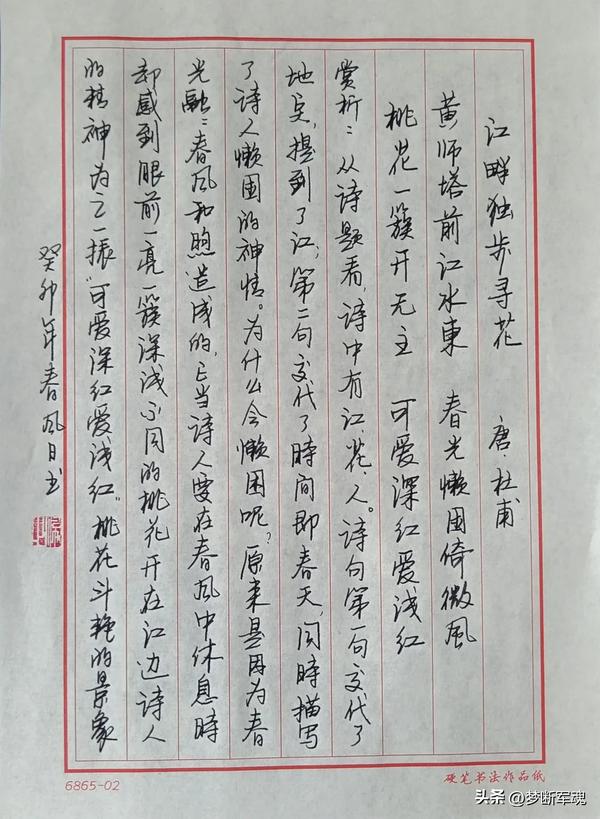 江畔独步寻花 唐·杜甫
黄师塔前江水東 春光懒困倚微風
桃花一簇开无主 可爱深红爱浅红
赏析：从诗题看，诗中有江、花、人。诗句第一句交代了
地点，提到了江；第二句交代了時间即春天，同時描写
了诗人懒困的神情。为什么会懒困呢？原来是因为春
光融融：春风和煦造成的，正当诗人要在春风中休息時
却感到眼前一亮一簇深浅不同的桃花开在江边诗人
的精神为之一振“可爱深红爱浅红”桃花斗艳的景象
癸卯年春风日书
6865-02
硬笔书法作品纸
头条@梦断军魂